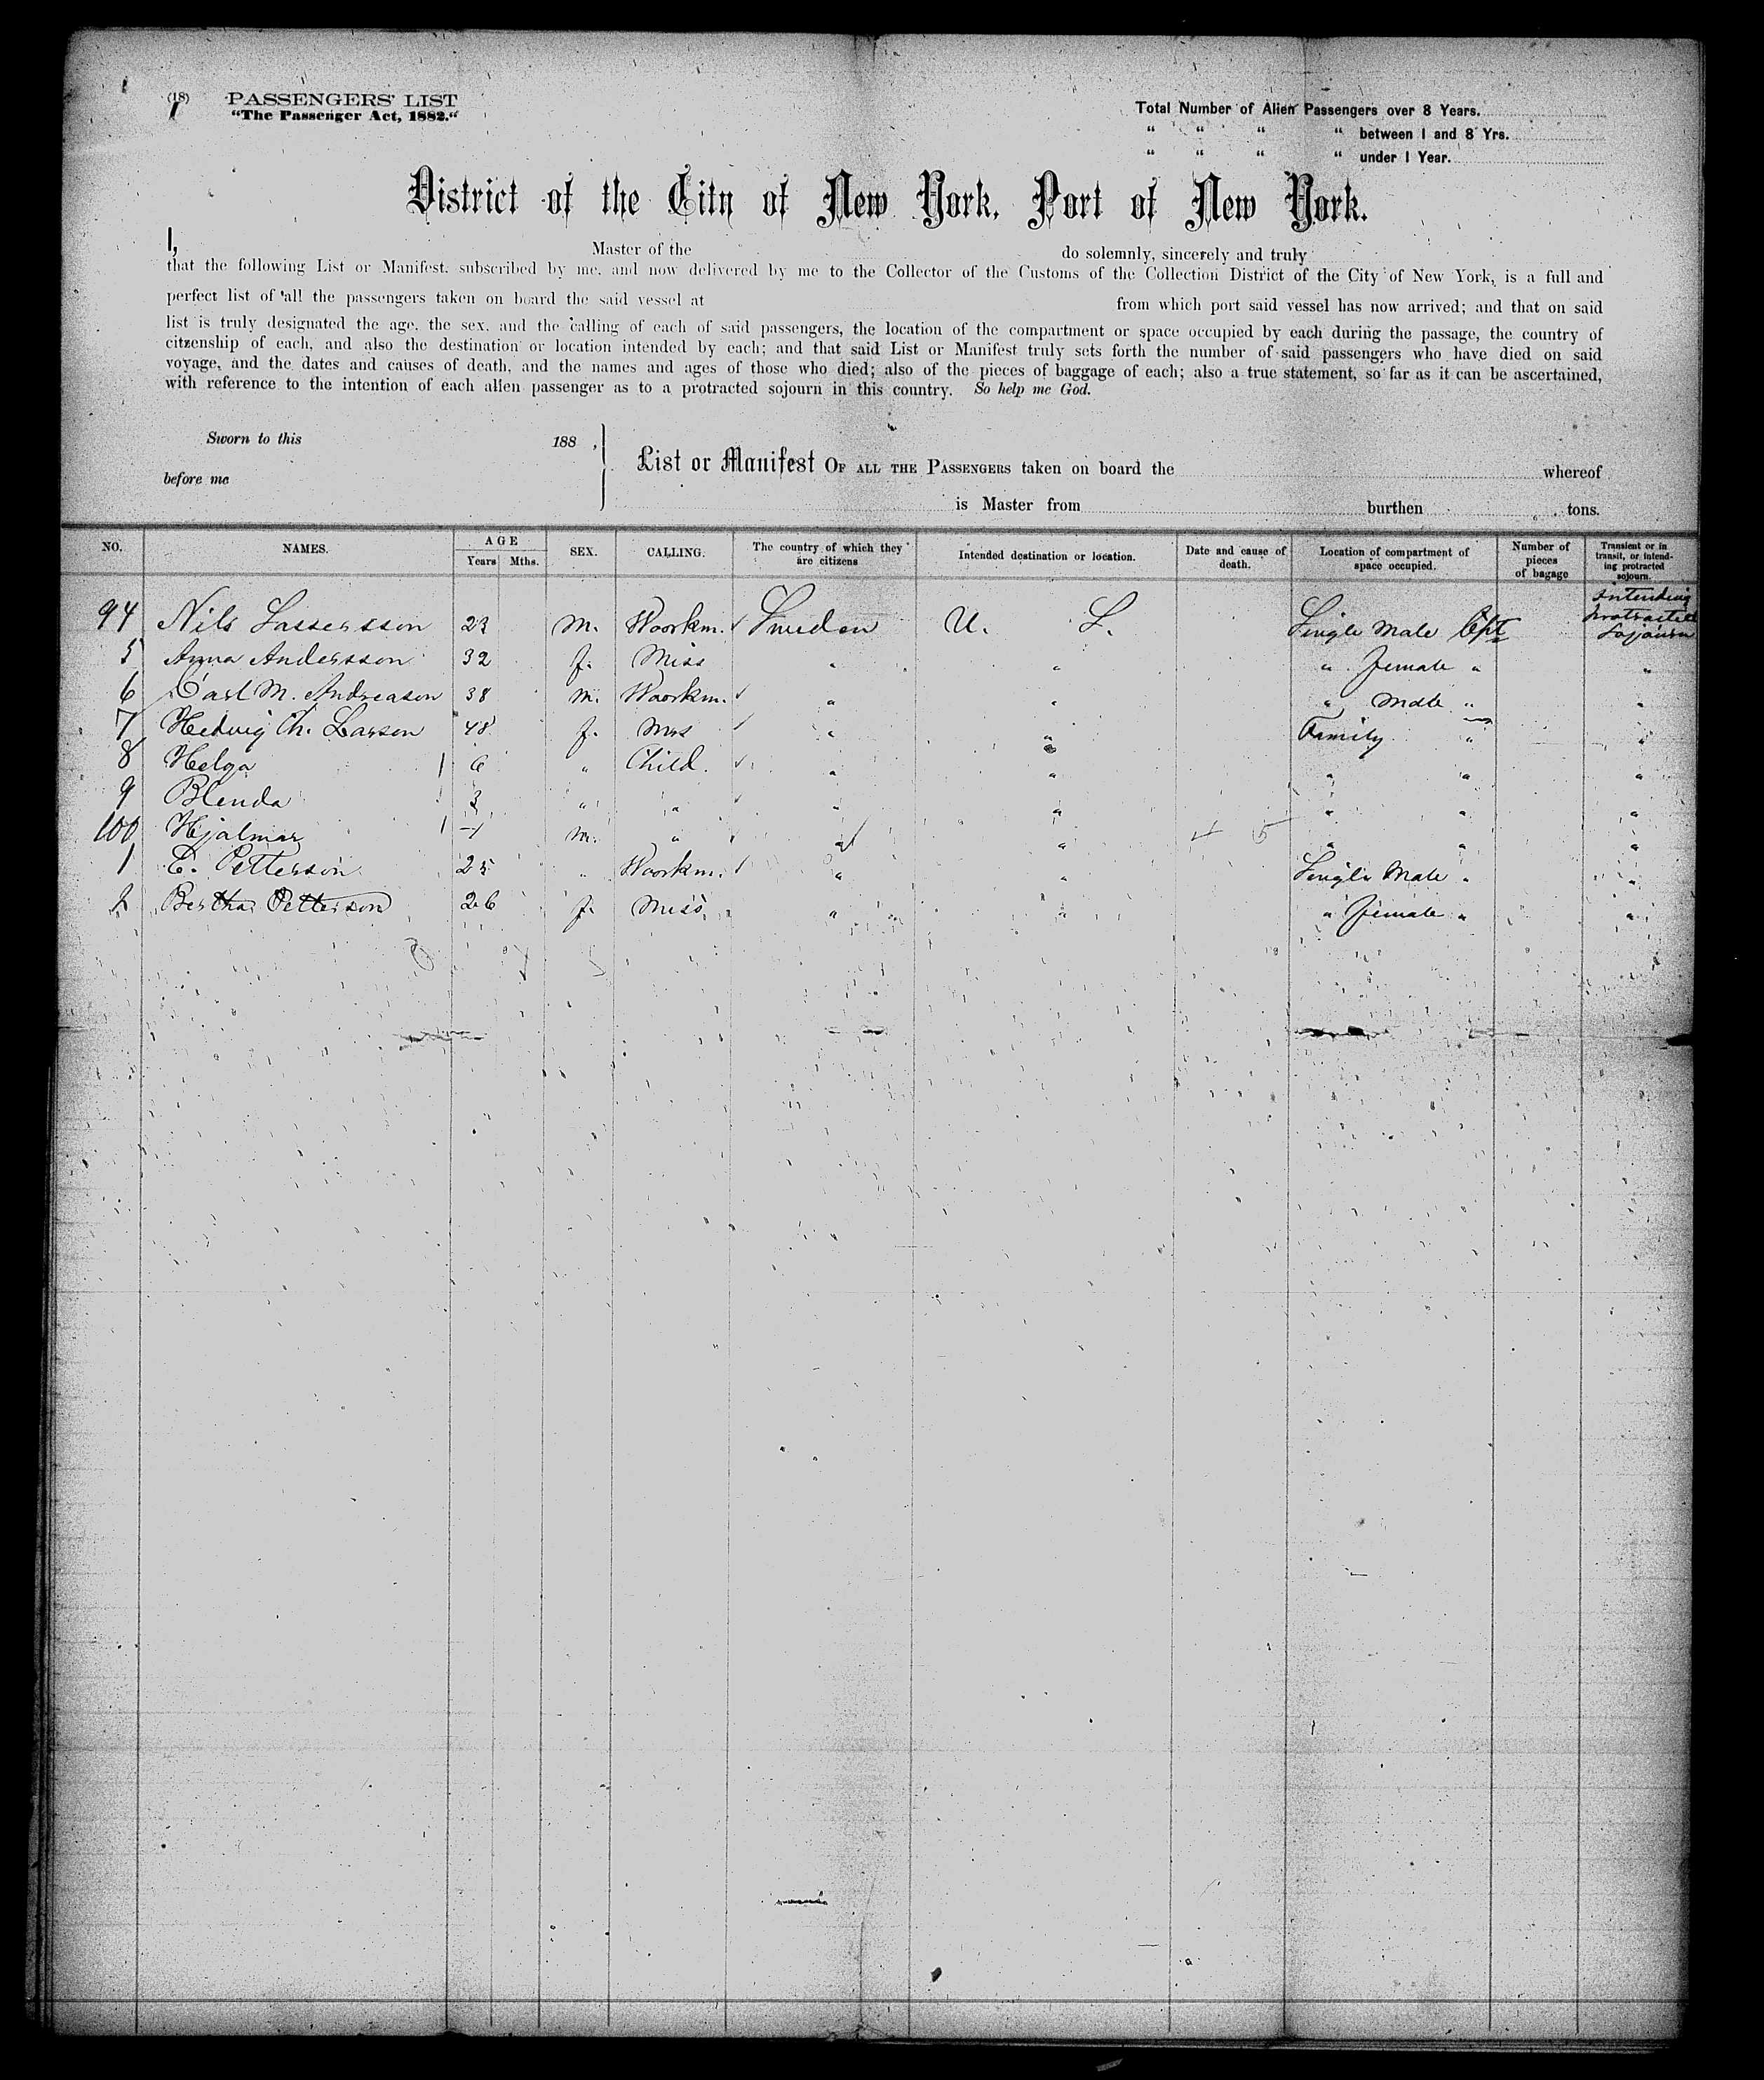 (18) PASSENGERS' LIST
1
"The Passenger Act, 1882."
Total Number of Alien Passengers over 8 Years.
" " " " between 1 and 8 Yrs.
" " " " under 1 Year.
District of the City of New York, Port of New York.
I, Master of the do solemnly, sincerely and truly
that the following List or Manifest, subscribed by me, and now delivered by me to the Collector of the Customs of the Collection District of the City of New York, is a full and
perfect list of all the passengers taken on board the said vessel at from which port said vessel has now arrived; and that on said
list is truly designated the age, the sex, and the calling of each of said passengers, the location of the compartment or space occupied by each during the passage, the country of
citzenship of each, and also the destination or location intended by each; and that said List or Manifest truly sets forth the number of said passengers who have died on said
voyage, and the dates and causes of death, and the names and ages of those who died; also of the pieces of baggage of each; also a true statement, so far as it can be ascertained,
with reference to the intention of each alien passenger as to a protracted sojourn in this country. So help me God.
Sworn to this 188 ,
before me
List or Manifest OF ALL THE PASSENGERS taken on board the whereof
is Master from burthen tons.
NO. NAMES. AGE Years Mths. SEX. CALLING. The country of which they are citizens Intended destination or location. Date and cause of death. Location of compartment of space occupied. Number of pieces of bagage Transient or in transit, or intending protracted sojourn.
94 Nils Lassersson 23 M. Woorkm. Sweden U. S. Single Male Cpt Intending protracted Sojourn
5 Anna Andersson 32 f. Miss " " " female " "
6 Carl M. Andreason 38 m. Woorkm. " " " Male " "
7 Hedwig Ch. Larson 48 f. Mrs " " Family " "
8 Helga 6 " Child. " " " " "
9 Blenda 3 " " " " " " "
100 Hjalmar 1 m. " " " " " "
1 C. Petterson 25 " Woorkm. " " Single Male " "
2 Bertha Petterson 26 f. Miss " " " female " "